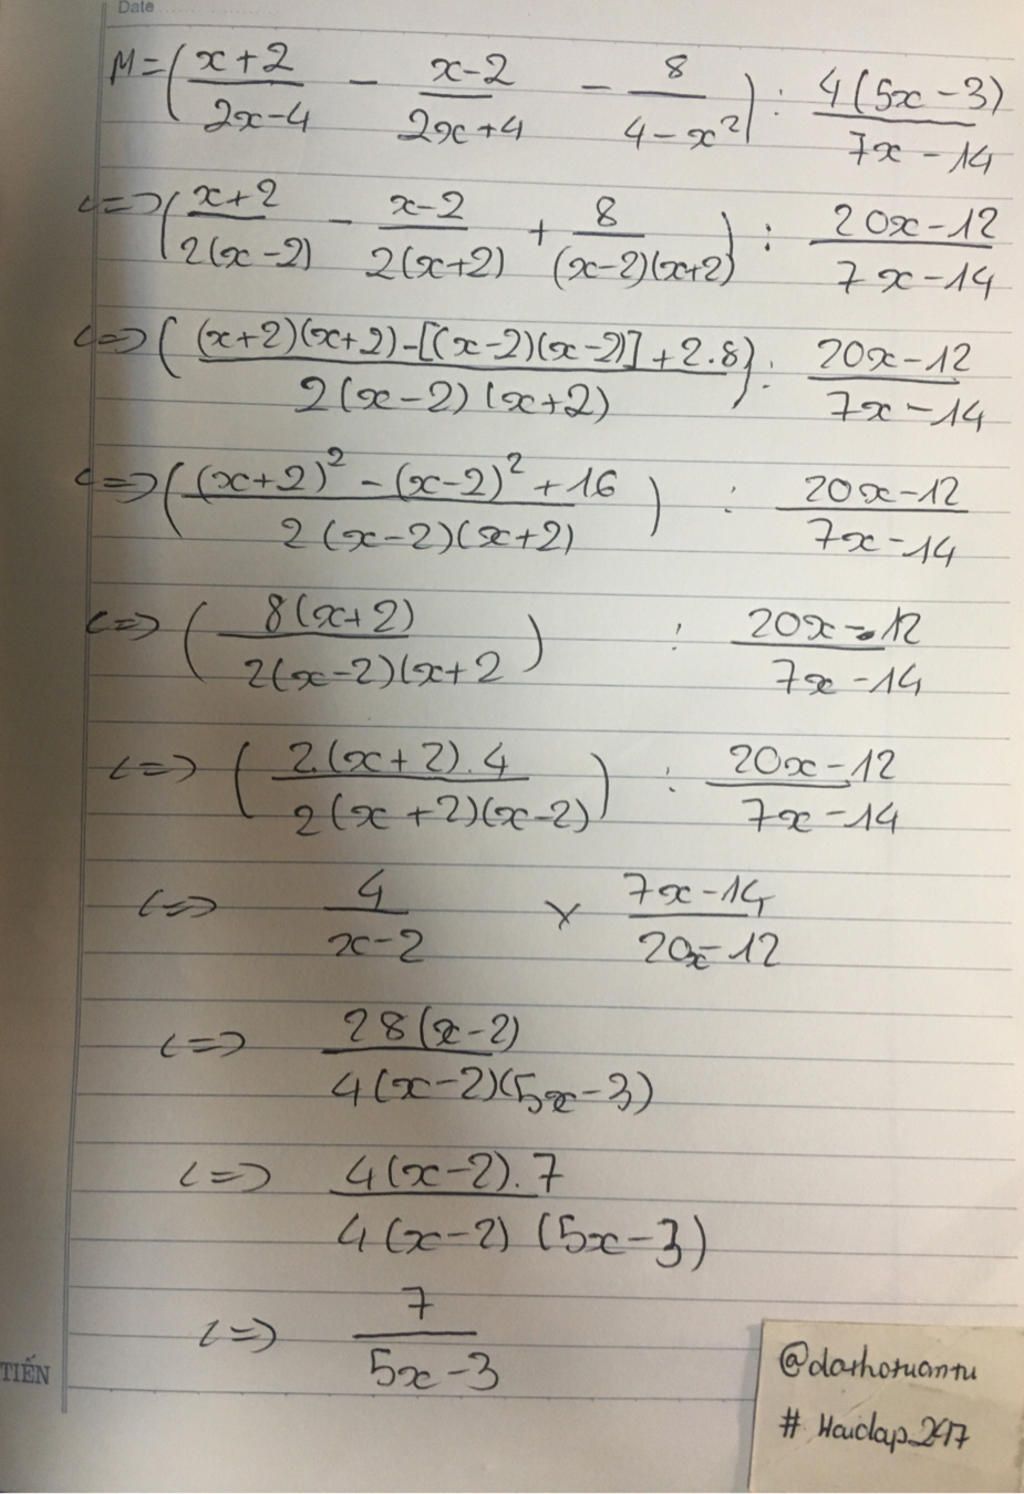 Date
M = ( (x+2)/(2x-4) - (x-2)/(2x+4) - 8/(4-x²) ) : 4(5x-3)/(7x-14)
<=> ( (x+2)/(2(x-2)) - (x-2)/(2(x+2)) + 8/((x-2)(x+2)) ) : (20x-12)/(7x-14)
<=> ( ((x+2)(x+2)-[(x-2)(x-2)]+2.8)/(2(x-2)(x+2)) ) : (20x-12)/(7x-14)
<=> ( ((x+2)²-(x-2)²+16)/(2(x-2)(x+2)) ) : (20x-12)/(7x-14)
<=> ( 8(x+2)/(2(x-2)(x+2 ) : (20x-12)/(7x-14)
<=> ( 2.(x+2).4/(2(x+2)(x-2)) ) : (20x-12)/(7x-14)
<=> 4/(x-2) × (7x-14)/(20x-12)
<=> 28(x-2)/(4(x-2)(5x-3))
<=> 4(x-2).7/(4(x-2)(5x-3))
<=> 7/(5x-3)
TIẾN
# Haidap_247